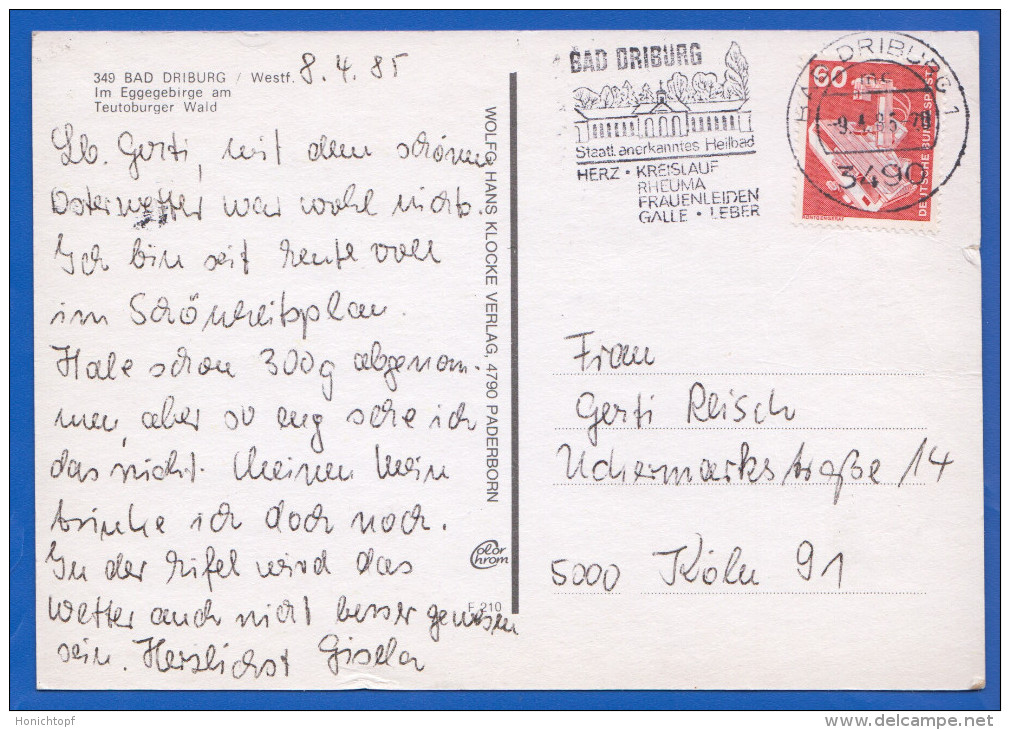 349 BAD DRIBURG / Westf.
Im Eggegebirge am
Teutoburger Wald
8.4.85
Lb. Gerti, mit dem schönen
Osterwetter war wohl nichts.
Ich bin seit heute voll
im Schönheitsplan.
Habe schon 300g abgenom-
men, aber so eng sehe ich
das nicht. Meinen Wein
trinke ich doch noch.
In der Eifel wird das
Wetter auch nicht besser gewesen
sein. Herzlichst Gisela
WOLFG. HANS KLOCKE VERLAG, 4790 PADERBORN
Color Chrom
F 210
BAD DRIBURG
Staatl. anerkanntes Heilbad
HERZ • KREISLAUF
RHEUMA
FRAUENLEIDEN
GALLE • LEBER
BAD DRIBURG 1
-9.4.85
3490
60
DEUTSCHE BUNDESPOST
Frau
Gerti Reisch
Uckermarkstraße 14
5000 Köln 91
Honichtopf
www.delcampe.net